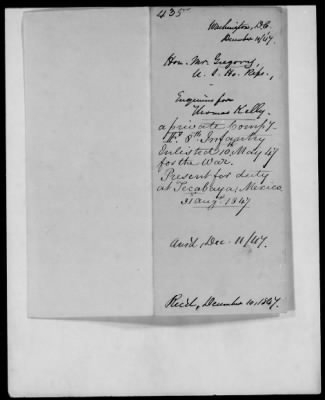 435
Washington, D.C.
December 10/47.
Hon. Mr. Gregory,
U. S. Ho. Reps.,
Enquires for
Thomas Kelly.
a private Comp'y
8th Infantry
Enlisted 10th May 47
for the War.
Present for duty
at Tacabaya, Mexico
31 Augt. 1847.
Ans'd, Dec. 11/47.
Rec'd, December 10, 1847.